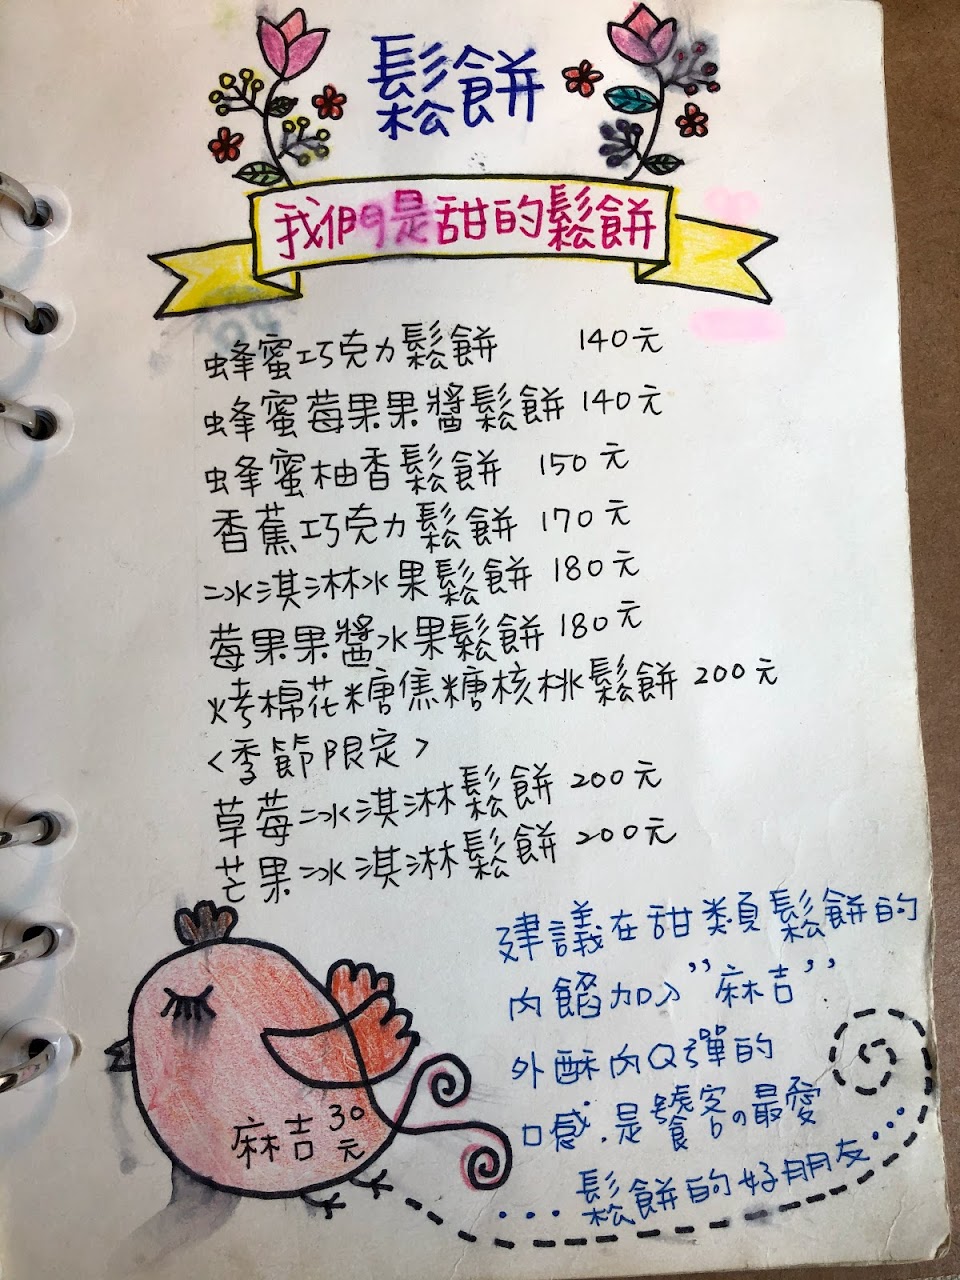 鬆餅
我們是甜的鬆餅
蜂蜜巧克力鬆餅 140元
蜂蜜莓果果醬鬆餅 140元
蜂蜜柚香鬆餅 150元
香蕉巧克力鬆餅 170元
冰淇淋水果鬆餅 180元
莓果果醬水果鬆餅 180元
烤棉花糖焦糖核桃鬆餅 200元
<季節限定>
草莓冰淇淋鬆餅 200元
芒果冰淇淋鬆餅 200元
建議在甜類鬆餅的
內餡加入"麻吉"
外酥內Q彈的
口感.是饕客の最愛
...鬆餅的好朋友...
麻吉30元